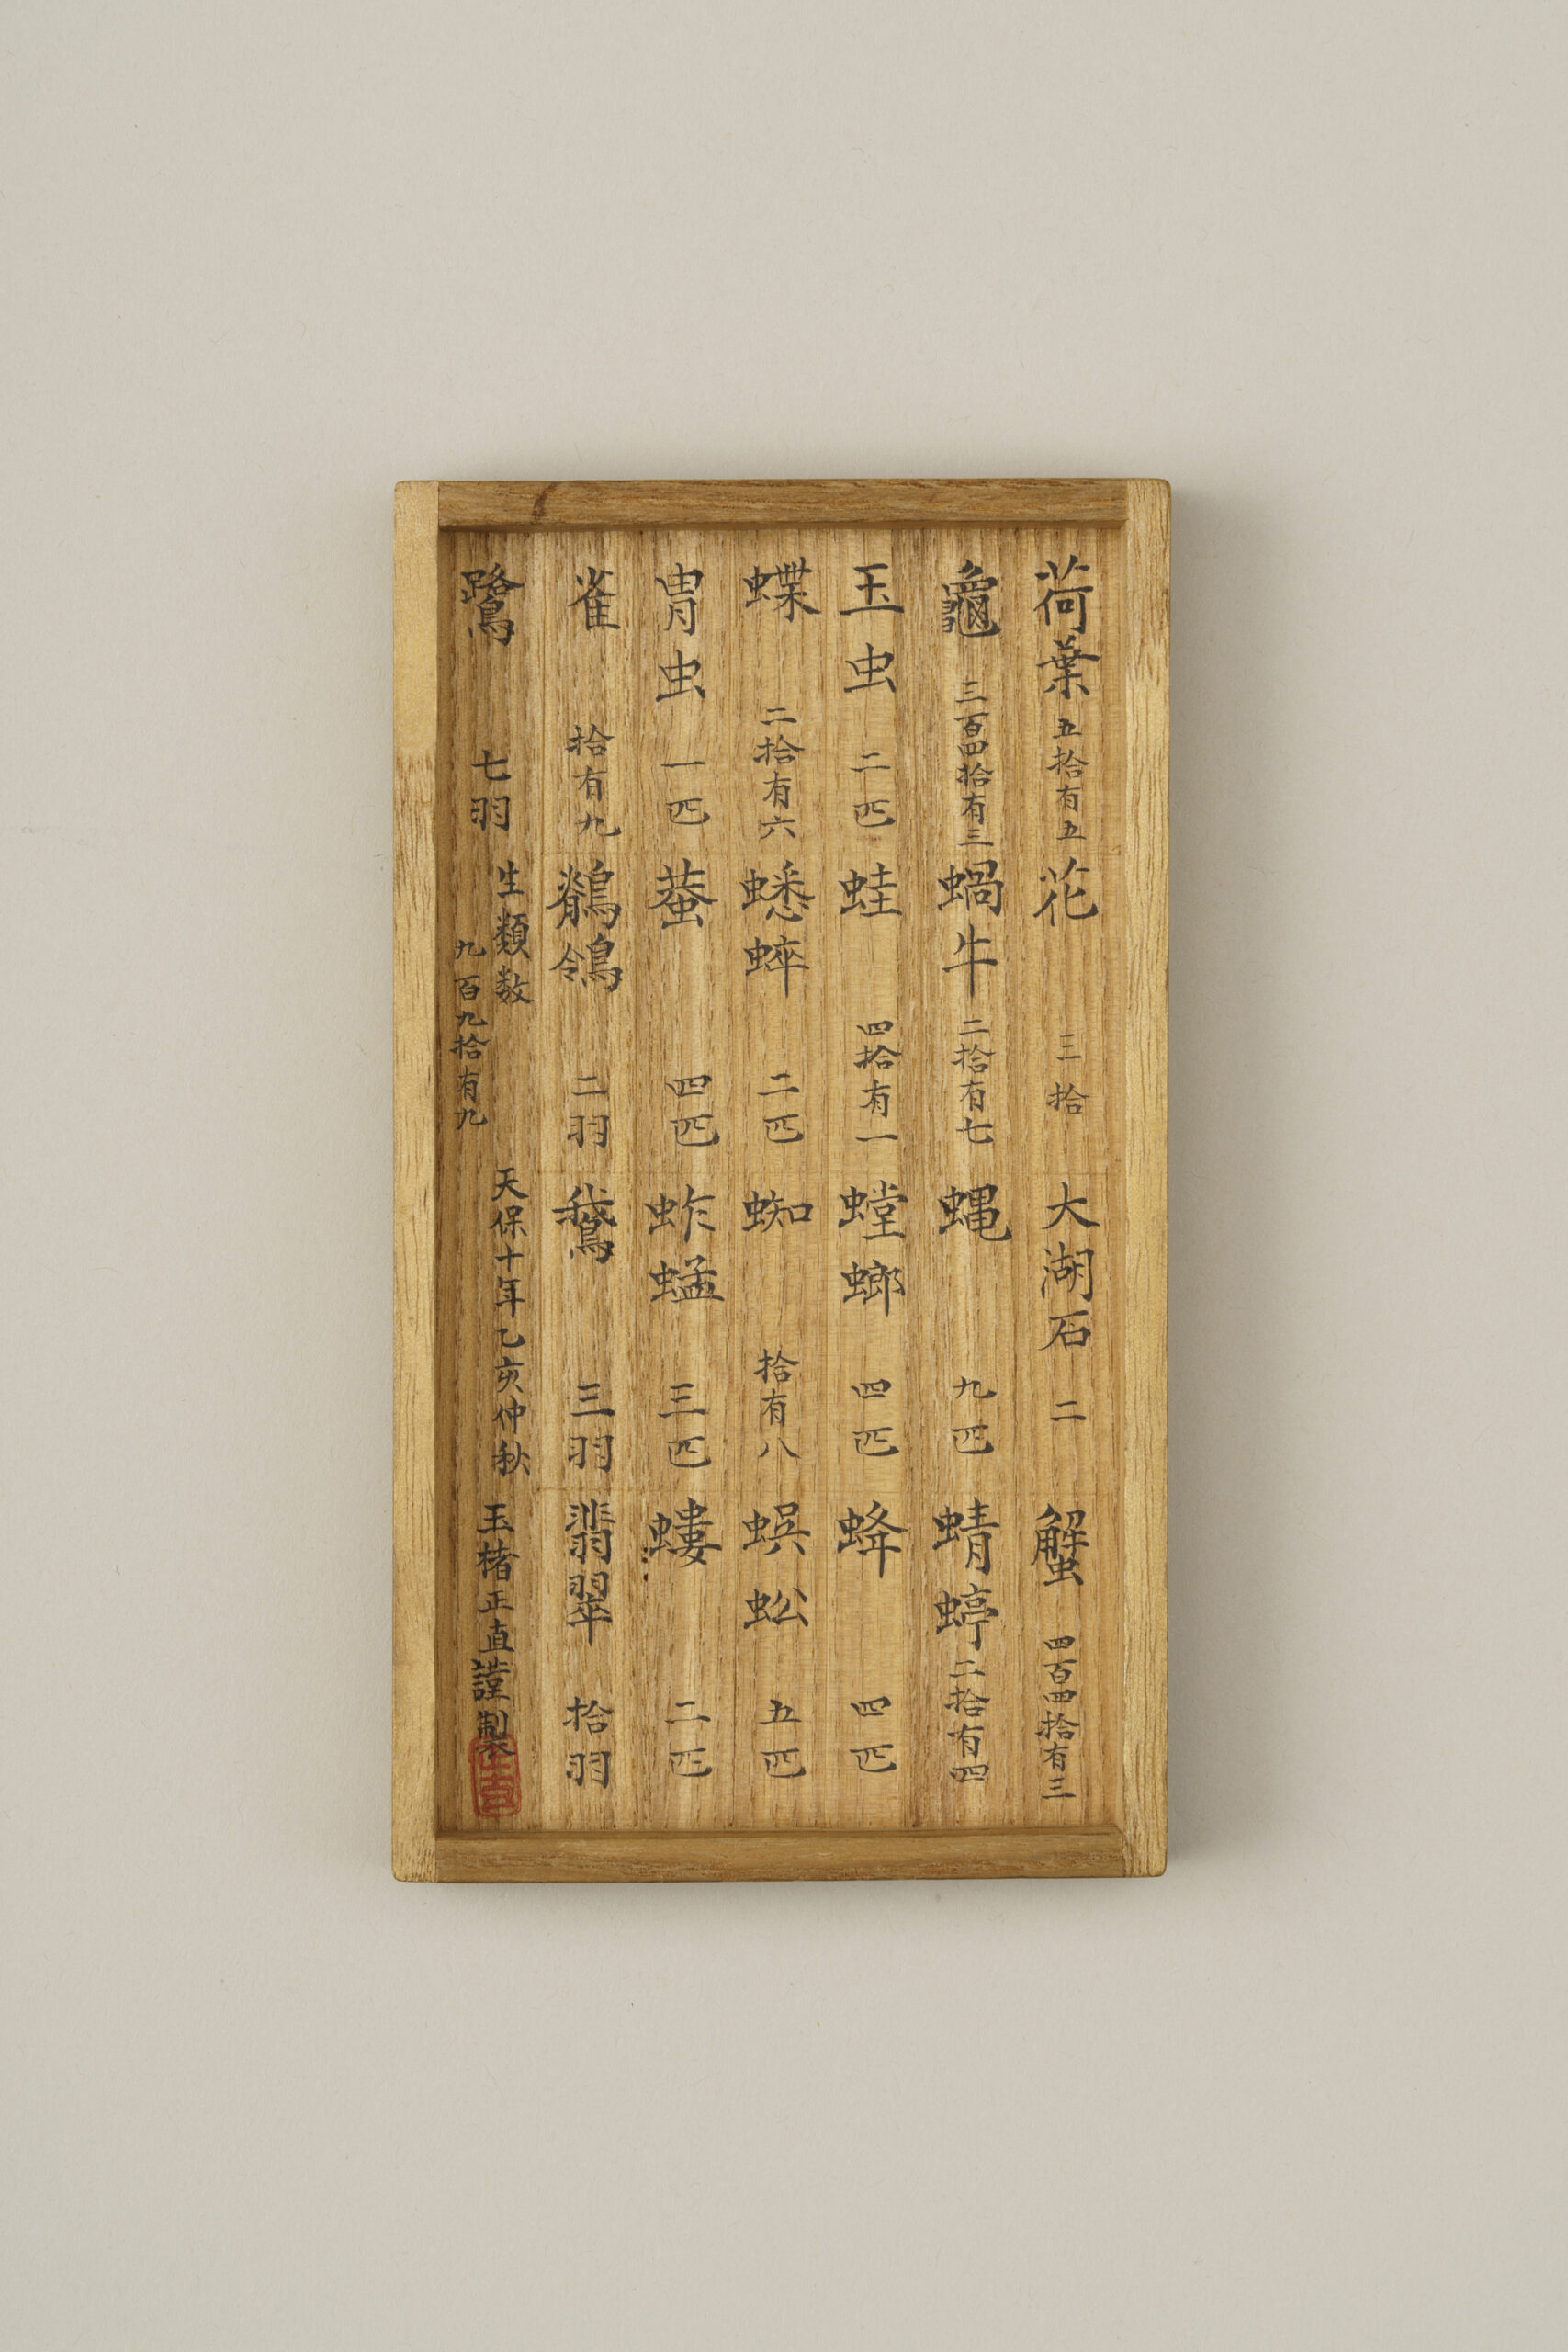 荷葉 五拾有五 花 三拾 大湖石 二 蟹 四百四拾有三
龜 三百四拾有三 蝸牛 二拾有七 蝿 九匹 蜻蝏 二拾有四
玉虫 二匹 蛙 四拾有一 螳螂 四匹 蜂 四匹
蝶 二拾有六 蟋蟀 二匹 蜘 拾有八 蜈蚣 五匹
冑虫 一匹 蛬 四匹 蚱蜢 三匹 螻 二匹
雀 拾有九 鶺鴒 二羽 鵞 三羽 翡翠 拾羽
鷺 七羽 生類数
九百九拾有九
天保十年乙亥仲秋 玉楮正直謹製